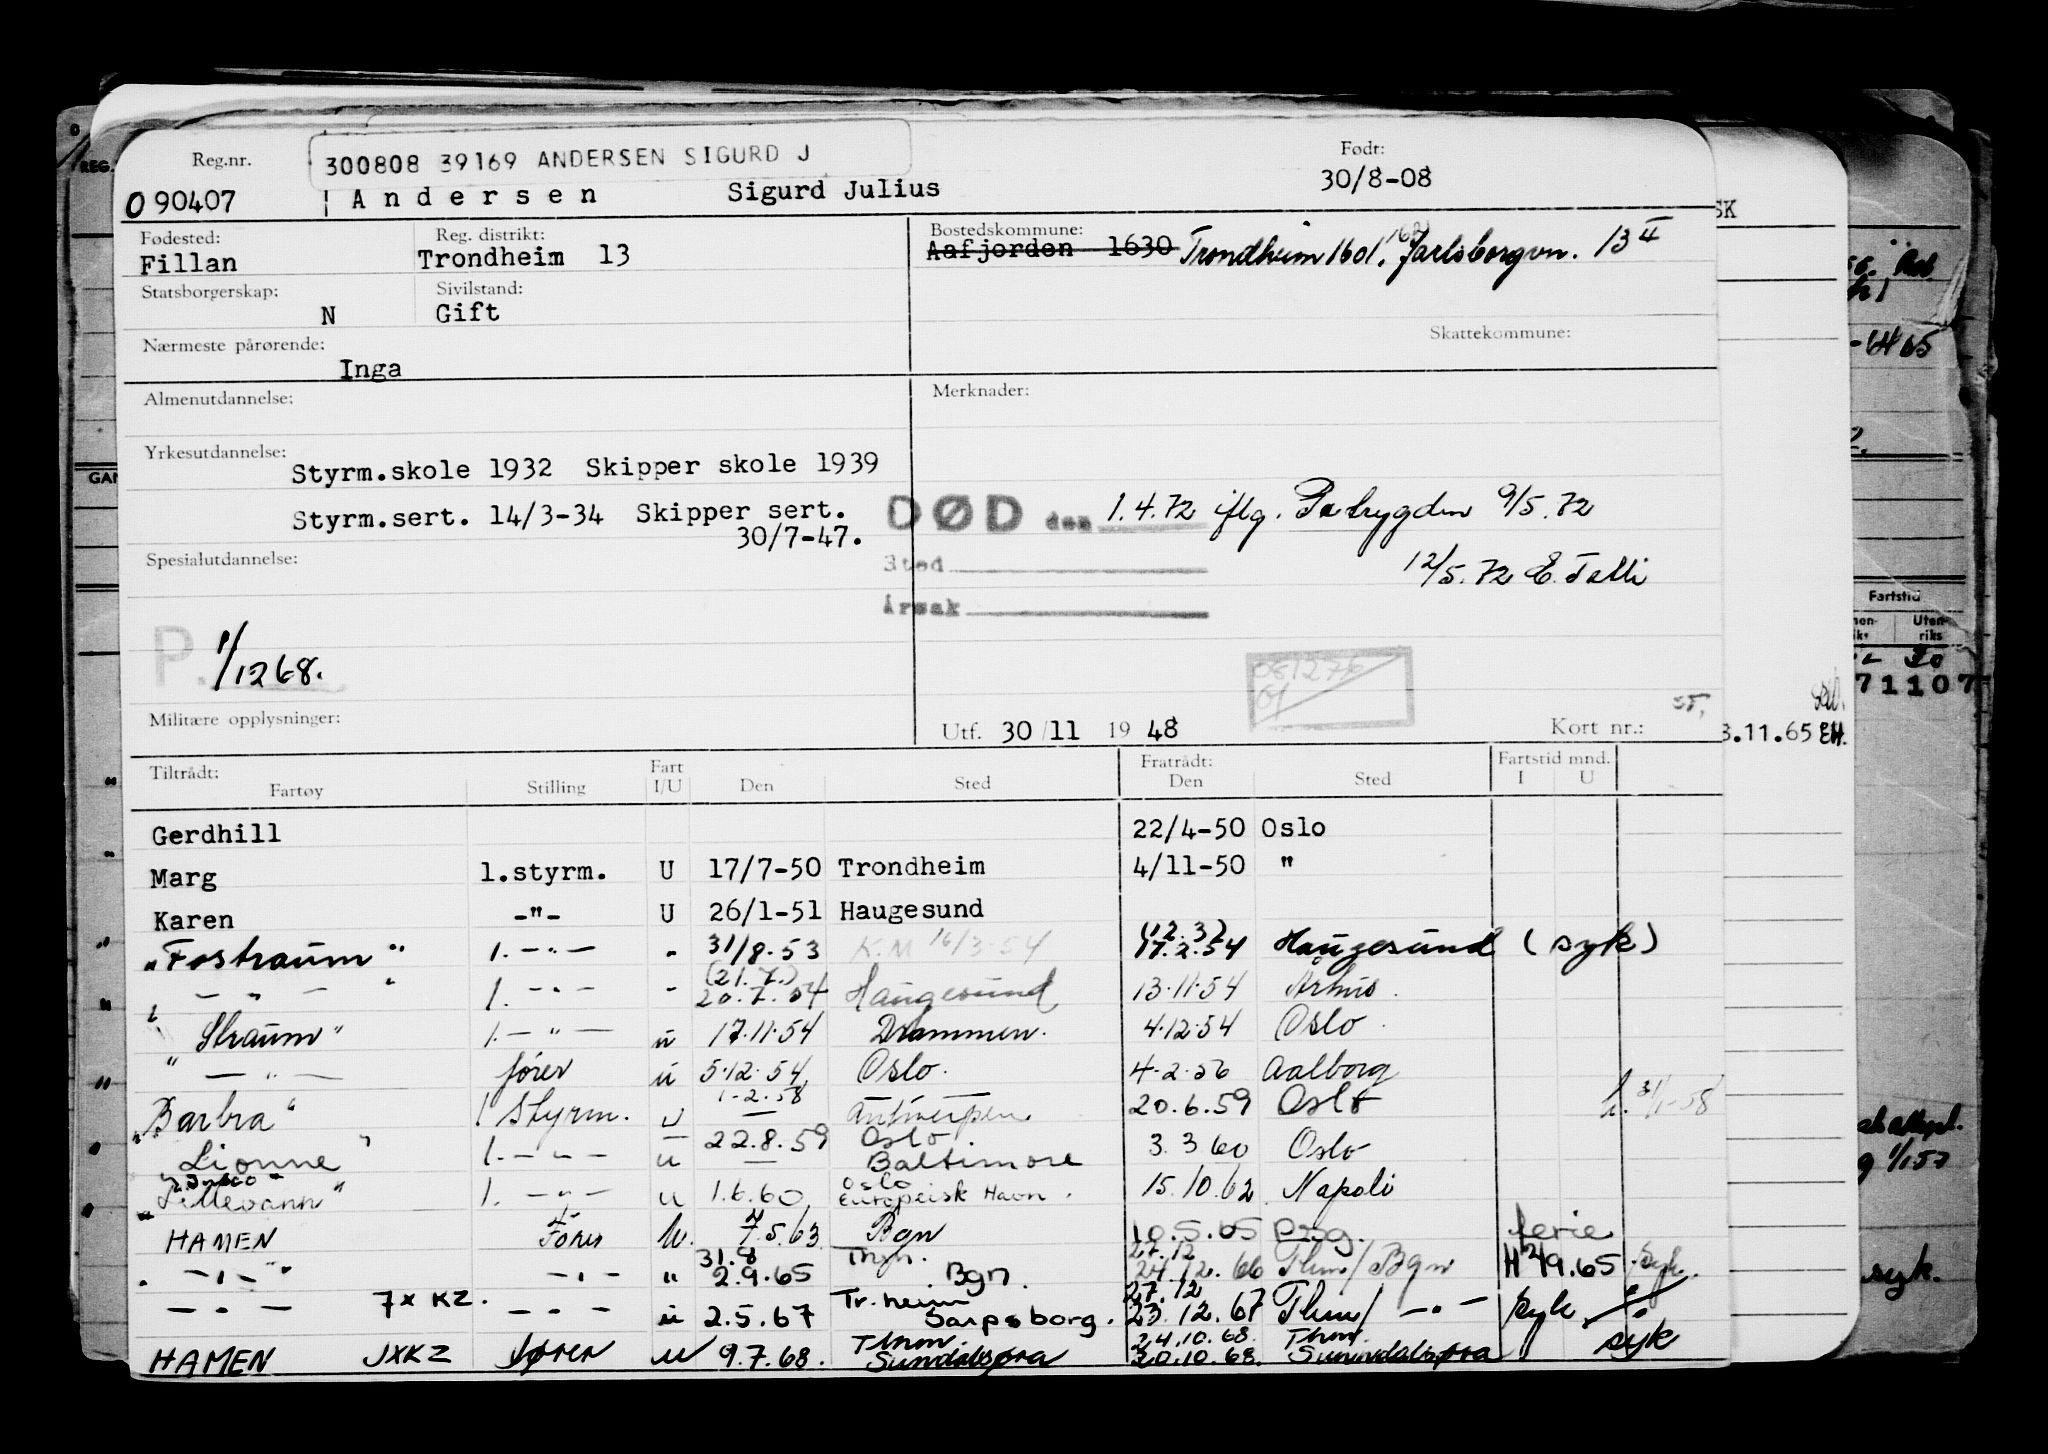 Reg.nr. 300808 39169 ANDERSEN SIGURD J Født:
090407 Andersen Sigurd Julius 30/8-08
Fødested: Reg. distrikt: Bostedskommune:
Fillan Trondheim 13 Aafjorden 1630 Trondheim 1601, Jarlsborgvn. 13 II
Statsborgerskap: Sivilstand:
N Gift
Nærmeste pårørende: Skattekommune:
Inga
Almenutdannelse: Merknader:
Yrkesutdannelse:
Styrm.skole 1932 Skipper skole 1939
Styrm.sert. 14/3-34 Skipper sert. DØD den 1.4.72 iflg. 9/5.72
30/7-47.
Spesialutdannelse: Sted 12/5.72 E.
Årsak
P. 1/1268.
081276
01
Militære opplysninger: Utf. 30/11 1948 Kort nr.: 3.11.65 EH.
Tiltrådt: Fart Fratrådt: Fartstid mnd.
Fartøy Stilling I/U Den Sted Den Sted I U
Gerdhill 22/4-50 Oslo
Marg 1.styrm. U 17/7-50 Trondheim 4/11-50 "
Karen -"- U 26/1-51 Haugesund
"Fostraum" 1. -"- - 31/8.53 K.M 16/3-54 (12.3?) 17.2.54 Haugesund (syk)
- " - 1. -"- - (21.7.) 20.7.54 Haugesund 13.11.54 Århus.
"Straum" 1. -"- u 17.11.54 Drammen. 4.12.54 Oslo.
" - " - fører u 5.12.54 Oslo. 4.2.56 Aalborg
"Barbra" 1 Styrm. u 1.2.58 Antwerpen 20.6.59 Oslo 31/1-58
"Lionne" 1. -"- u 22.8.59 Oslo. Baltimore 3.3 60 Oslo
"Lillevann" 1. -"- u 1.6.60 Oslo Europeisk Havn. 15.10.62 Napoli
HAMEN Fører u. 7.5.63 Bgn 10.5.65 ferie
- " - -"- " 31.8 2.9.65 Thm. Bgn. 27.12 24.12.66 Thm/Bgn 9.65 syk.
- " - 7x KZ. -"- u 2.5.67 Tr.heim Sarpsborg. 27.12 23.12.67 Thm/ -"- syk
HAMEN JXKZ fører u 9.7.68. Thm. Sundalsøra 24.10.68. 20.10.68. Thm. Sunndalsøra syk
SK
-64 65
Fartstid
Uten-
riks
71107
syk.